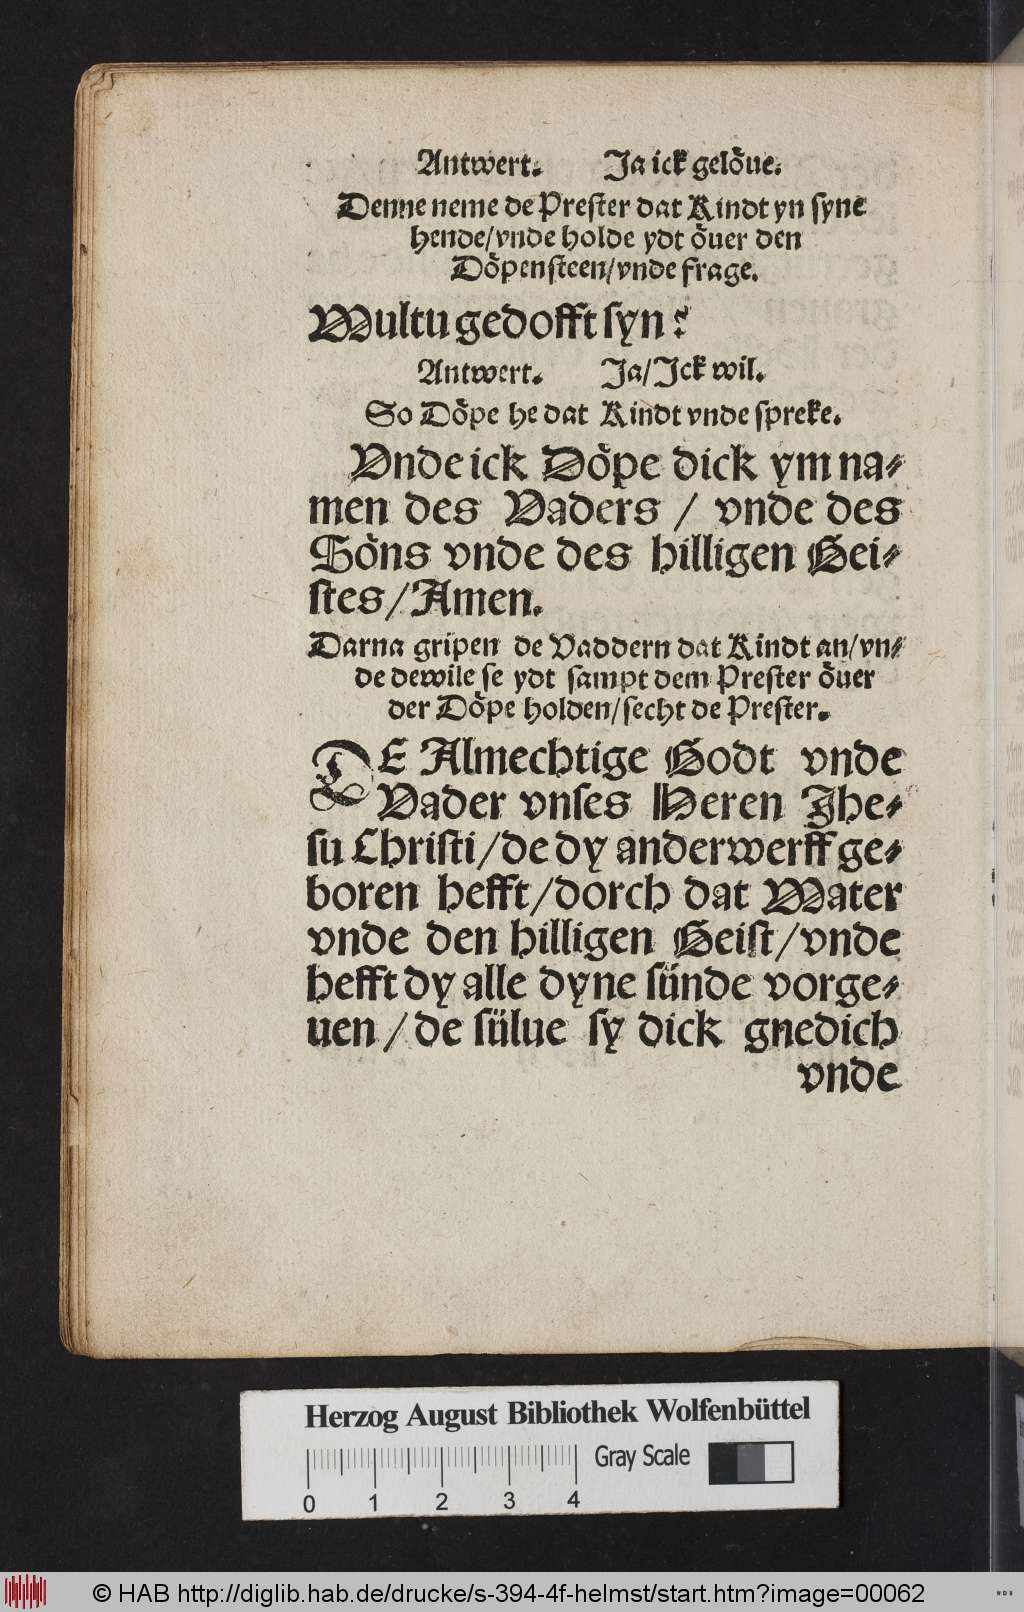 Antwert. Ja ick gelöue.
Denne neme de Prester dat Kindt yn syne
hende/vnde holde ydt öuer den
Döpensteen/vnde frage.
Wultu gedofft syn?
Antwert. Ja/Jck wil.
So Döpe he dat Kindt vnde spreke.
Vnde ick Döpe dick ym na-
men des Vaders / vnde des
Söns vnde des hilligen Gei-
stes/Amen.
Darna gripen de Vaddern dat Kindt an/vn-
de dewile se ydt sampt dem Prester öuer
der Döpe holden/secht de Prester.
DE Almechtige Godt vnde
Vader vnses Heren Jhe-
su Christi/de dy anderwerff ge-
boren hefft/dorch dat Water
vnde den hilligen Geist/vnde
hefft dy alle dyne sünde vorge-
uen/de sülue sy dick gnedich
vnde
Herzog August Bibliothek Wolfenbüttel
Gray Scale
0 1 2 3 4
© HAB http://diglib.hab.de/drucke/s-394-4f-helmst/start.htm?image=00062